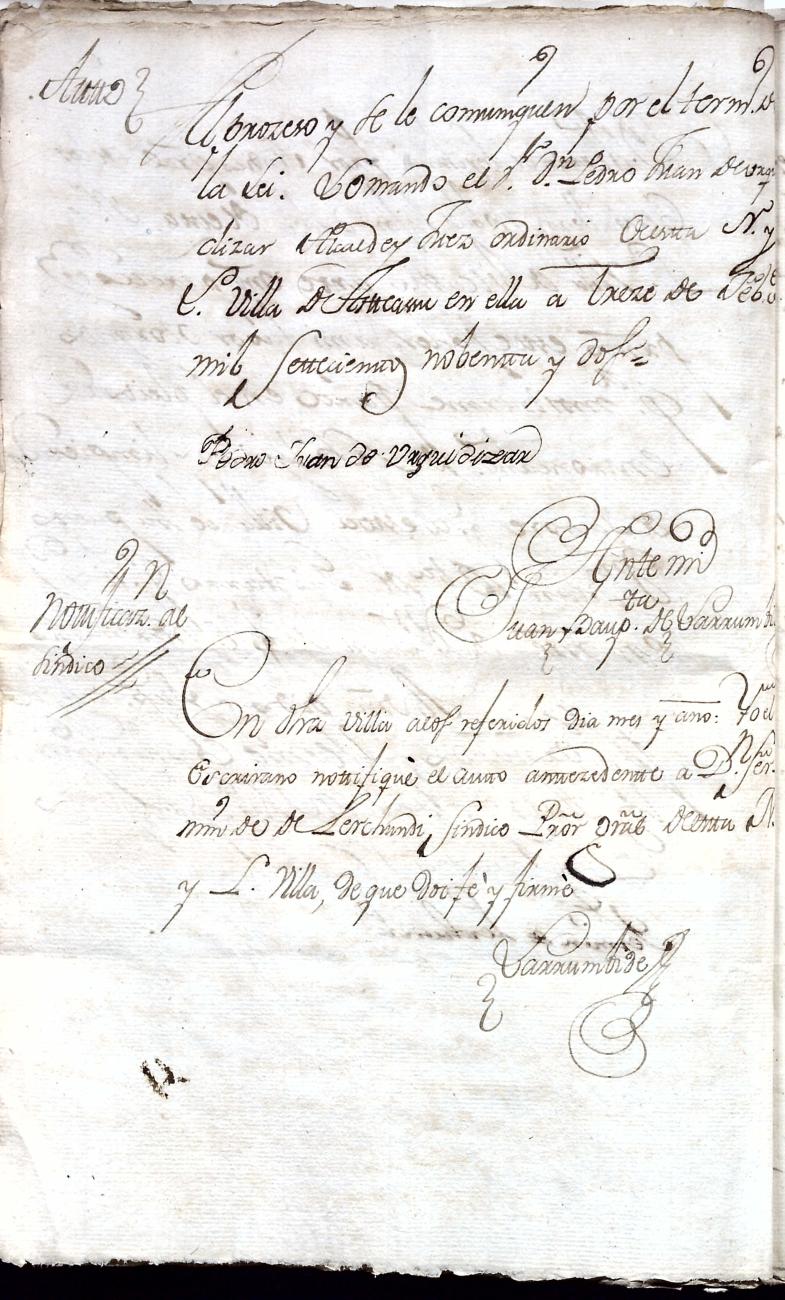 Autto
Al prozeso y se le comuniquen por el term.º de
la Lei. Lo mando el S.r D.n Pedro Juan de Urqui
dizar Alcalde y Juez ordinario de esta N. y
L. Villa de Azcoitia en ella a Treze de Feb.o de
mil Settecientos nobenta y dos=
Pedro Juan de Urquidizar
Ante mi
Juan Baup.ta de Larrumbide
Notificaz.n al
Sindico
En dha villa a los referidos dia mes y año: Yo el
Escrivano nottifiquè el autto anttezedentte a D.n Fer
min de Lerchundi, Sindico Pror Gral de esta N.
y L. Villa, de que doi fe y firmè
Larrumbide